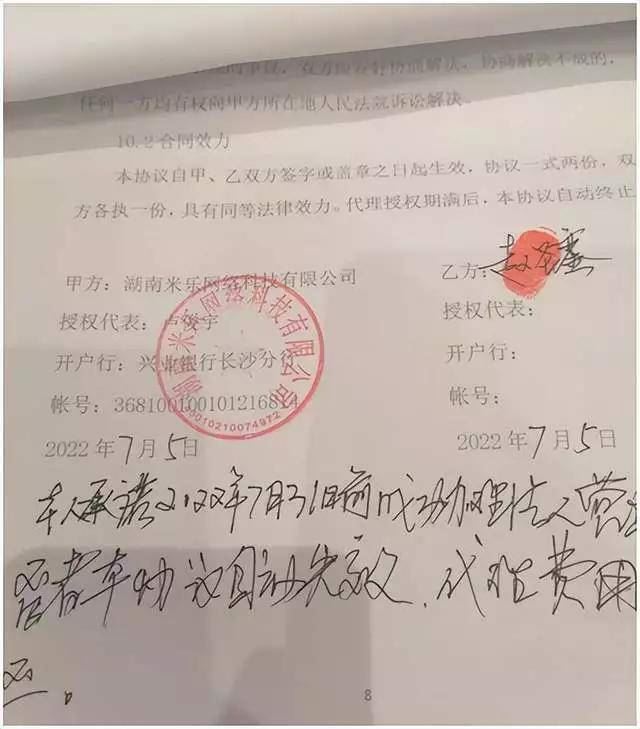 争议，双方应友好协商解决，协商解决不成的，
任何一方均有权向甲方所在地人民法院诉讼解决。
10.2合同效力
本协议自甲、乙双方签字或盖章之日起生效，协议一式两份，双
方各执一份，具有同等法律效力。代理授权期满后，本协议自动终止
甲方：湖南米乐网络科技有限公司
乙方：
授权代表：卢俊宇
授权代表：
开户行：兴业银行长沙分行
开户行：
帐号：368100100101216814
帐号：
湖南米乐网络科技有限公司
0010210074972
2022年7月5日
2022年7月5日
本人承诺2022年7月31日前成功办理法人营
否者本协议自动失效，代理费用
还。
8